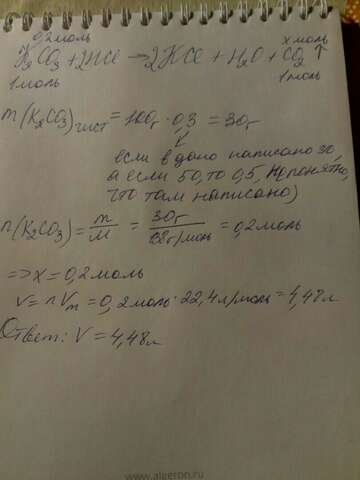 0,2моль x моль
K₂CO₃ + 2HCl → 2KCl + H₂O + CO₂ ↑
1моль 1моль
m(K₂CO₃)чист = 100г · 0,3 = 30г
если в дано написано 30,
а если 50, то 0,5, непонятно,
что там написано)
n(K₂CO₃) = m/M = 30г/138г/моль = 0,2моль
=> x = 0,2моль
V = n Vm = 0,2моль · 22,4л/моль = 4,48л
Ответ: V = 4,48л
www.algeron.ru